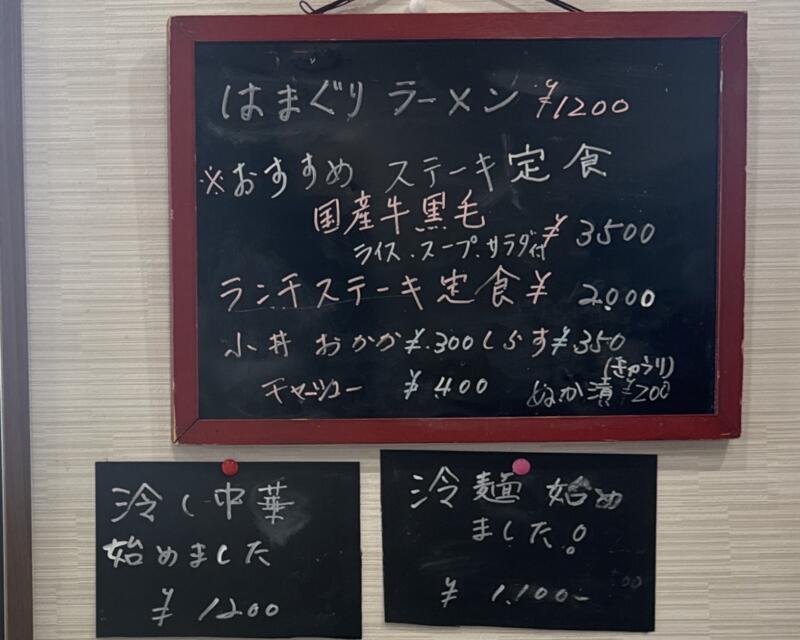 はまぐりラーメン ¥1200
※おすすめ ステーキ定食
国産牛黒毛
ライス.スープ.サラダ付 ¥3500
ランチステーキ定食¥2000
小丼 おかか¥300しらす¥350
チャーシュー ¥400
(きゅうり)
ぬか漬 ¥200
冷し中華
始めました
¥1200
冷麺 始め
ました!
¥1.100-